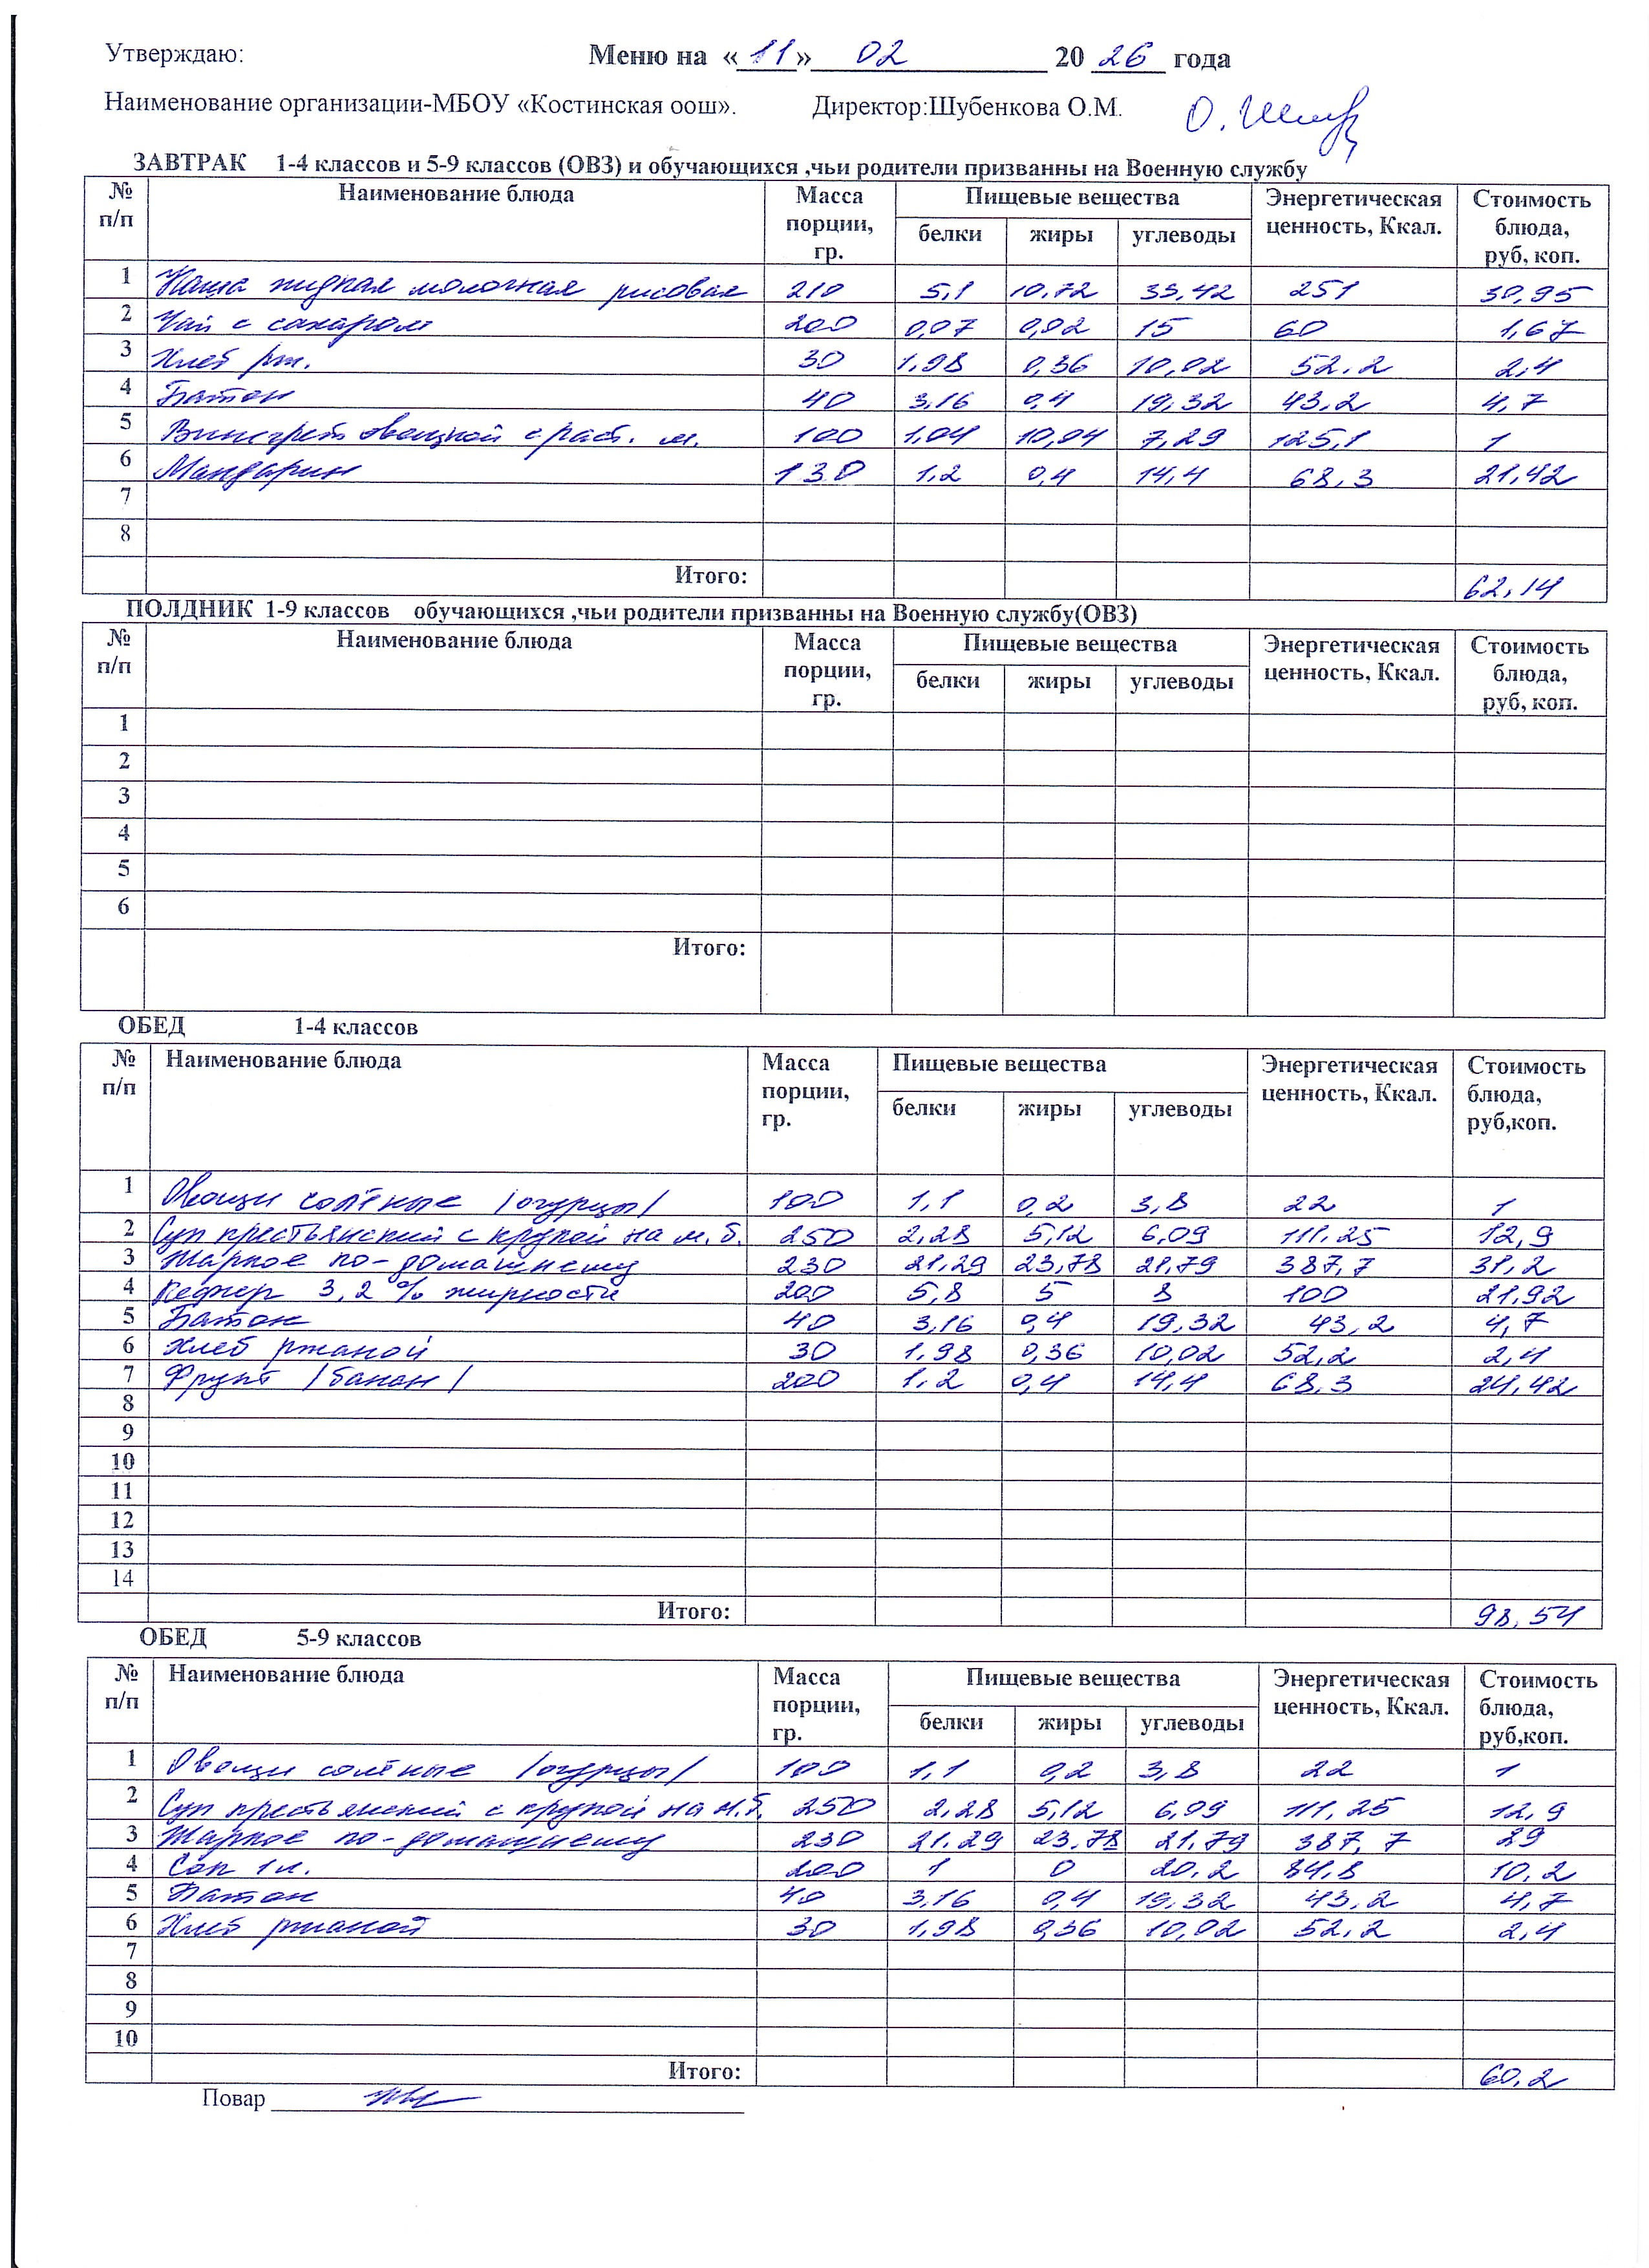 Утверждаю: Меню на «11» 02 20 26 года
Наименование организации-МБОУ «Костинская оош». Директор:Шубенкова О.М.
ЗАВТРАК 1-4 классов и 5-9 классов (ОВЗ) и обучающихся ,чьи родители призванны на Военную службу
№ п/п Наименование блюда Масса порции, гр. Пищевые вещества Энергетическая ценность, Ккал. Стоимость блюда, руб, коп.
белки жиры углеводы
1 Каша жидкая молочная рисовая 210 5,1 10,72 33,42 251 30,95
2 Чай с сахаром 200 0,07 0,02 15 60 1,67
3 Хлеб рж. 30 1,98 0,36 10,02 52,2 2,4
4 Батон 40 3,16 0,4 19,32 43,2 4,7
5 Винегрет овощной с раст. м. 100 1,04 10,04 7,29 125,1 1
6 Мандарин 130 1,2 0,4 14,4 68,3 21,42
7
8
Итого: 62,14
ПОЛДНИК 1-9 классов обучающихся ,чьи родители призванны на Военную службу(ОВЗ)
№ п/п Наименование блюда Масса порции, гр. Пищевые вещества Энергетическая ценность, Ккал. Стоимость блюда, руб, коп.
белки жиры углеводы
1
2
3
4
5
6
Итого:
ОБЕД 1-4 классов
№ п/п Наименование блюда Масса порции, гр. Пищевые вещества Энергетическая ценность, Ккал. Стоимость блюда, руб,коп.
белки жиры углеводы
1 Овощи солёные /огурцы/ 100 1,1 0,2 3,8 22 1
2 Суп крестьянский с крупой на м.б. 250 2,28 5,12 6,09 111,25 12,9
3 Жаркое по-домашнему 230 21,29 23,78 21,79 387,7 31,2
4 Кефир 3,2% жирности 200 5,8 5 8 100 21,92
5 Батон 40 3,16 0,4 19,32 43,2 4,7
6 Хлеб ржаной 30 1,98 0,36 10,02 52,2 2,4
7 Фрукт /банан/ 200 1,2 0,4 14,4 68,3 24,42
8
9
10
11
12
13
14
Итого: 98,54
ОБЕД 5-9 классов
№ п/п Наименование блюда Масса порции, гр. Пищевые вещества Энергетическая ценность, Ккал. Стоимость блюда, руб,коп.
белки жиры углеводы
1 Овощи солёные /огурцы/ 100 1,1 0,2 3,8 22 1
2 Суп крестьянский с крупой на м.б. 250 2,28 5,12 6,09 111,25 12,9
3 Жаркое по-домашнему 230 21,29 23,78 21,79 387,7 29
4 Сок 1л. 200 1 0 20,2 84,8 10,2
5 Батон 40 3,16 0,4 19,32 43,2 4,7
6 Хлеб ржаной 30 1,98 0,36 10,02 52,2 2,4
7
8
9
10
Итого: 60,2
Повар